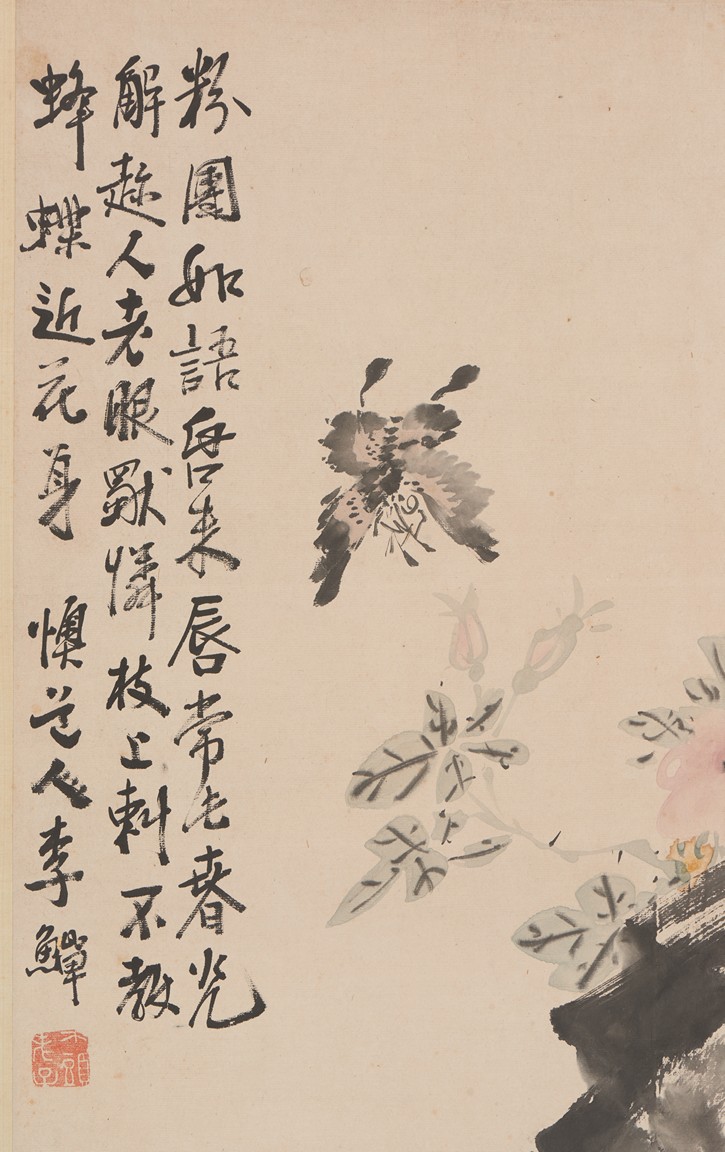 粉團如語啓朱唇常春光
解趂人老眼獨憐枝上刺不教
蜂蝶近花身 懊道人李鱓
木頭老子